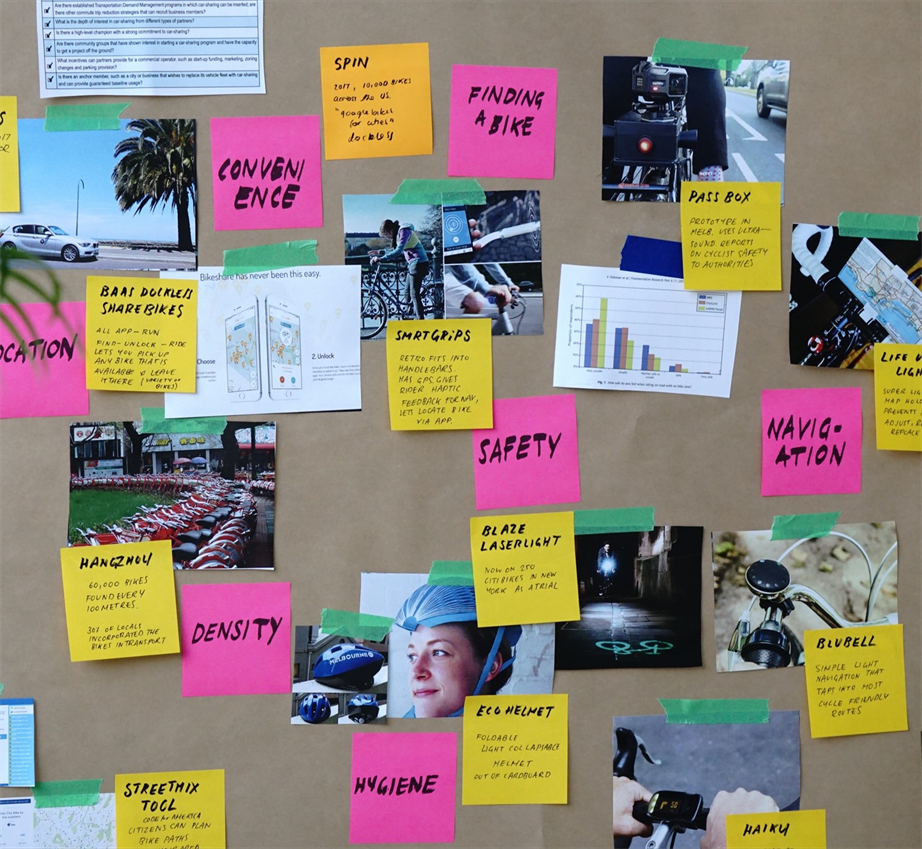 are there established Transportation Demand Management programs in which car-sharing can be inserted; are
there other commuter trip reduction strategies that can recruit business members?
What is the depth of interest in car-sharing from different types of partners?
Is there a high-level champion with a strong commitment to car-sharing?
Are there community groups that have shown interest in starting a car-sharing program and have the capacity
to get a project off the ground?
What incentives can partners provide for a commercial operator, such as start-up funding, marketing, zoning
changes and parking provision?
Is there an anchor member, such as a city or business that wishes to replace its vehicle fleet with car-sharing
and can provide guaranteed baseline usage?
SPIN
2017, 10,000 BIKES
across the US.
"google bikes
dockless
FINDING
A BIKE
CONVENI
ENCE
PASS BOX
PROTOTYPE IN
MELB. USES ULTRA-
SOUND REPORTS
ON CYCLIST SAFETY
TO AUTHORITIES
BAAS DOCKLESS
SHAREBIKES
ALL APP-RUN
FIND-UNLOCK-RIDE
LETS YOU PICK UP
ANY BIKE THAT IS
AVAILABLE & LEAVE
IT THERE (VARIETY OF
BIKES)
Bikeshare has never been this easy.
Choose
2. Unlock
OCATION
SMRTGRiPS
RETRO FITS INTO
HANDLEBARS.
HAS GPS. GIVES
RIDER HAPTIC
FEEDBACK FOR NAV,
LETS LOCATE BIKE
VIA APP.
LIFE
LIGH
SUPER LIG
MAP HOL
PREVENTS
ADJUST, R
REPLACE
SAFETY
NAVIG-
ATION
HANGZHOU
60,000 BIKES
FOUND EVERY
100 METRES.
30% OF LOCALS
INCORPORATED THE
BIKES IN TRANSPORT
DENSITY
BLAZE
LASERLIGHT
NOW ON 250
CITIBIKES IN NEW
YORK AS A TRIAL
MELBOURNE
BLUBELL
SIMPLE LIGHT
NAVIGATION THAT
TAPS INTO MOST
CYCLE FRIENDLY
ROUTES
ECO HELMET
FOLDABLE
LIGHT COLLAPSABLE
HELMET
OUT OF CARDBOARD
HYGIENE
STREETMIX
TOOL
CODE for AMERICA
CITIZENS CAN PLAN
BIKE PATHS
HAIKU